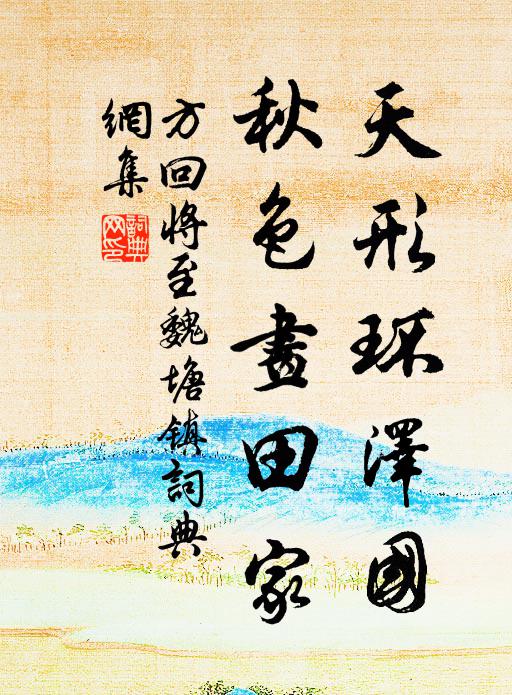 天形环澤國
秋色畫田家
方回将至魏塘鎮詞典
網集
詞典網印